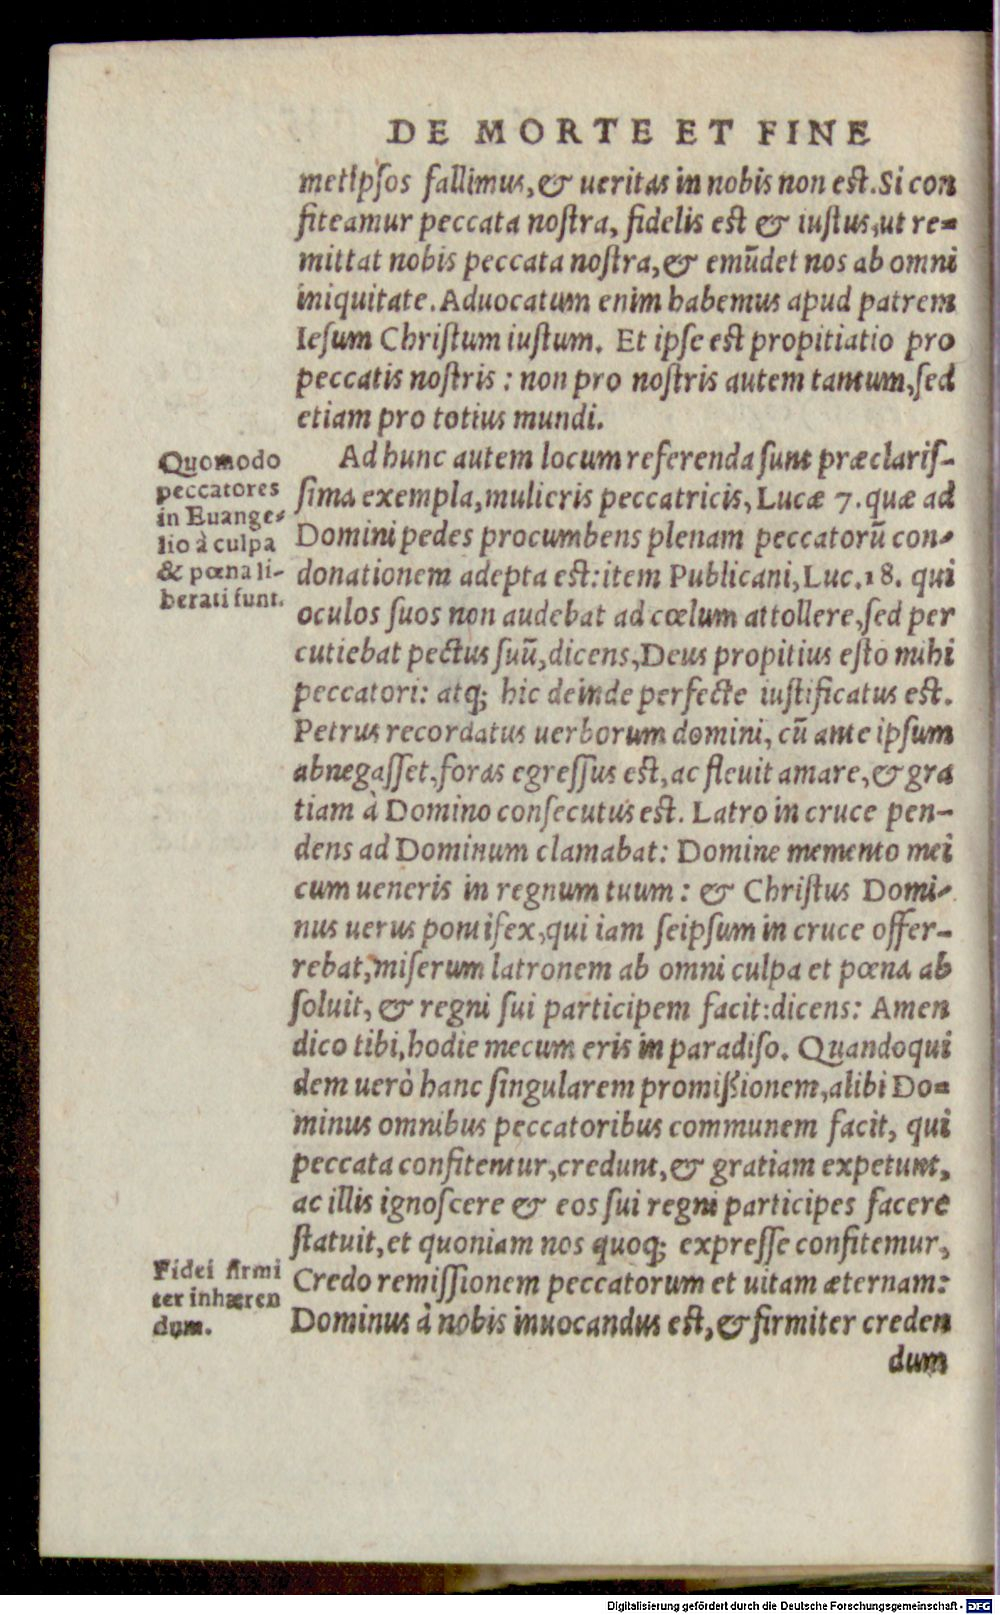 DE MORTE ET FINE
metipſos fallimus, & ueritas in nobis non eſt. Si con
fiteamur peccata noſtra, fidelis eſt & iuſtus, ut re=
mittat nobis peccata noſtra, & emūdet nos ab omni
iniquitate. Aduocatum enim habemus apud patrem
Ieſum Chriſtum iuſtum. Et ipſe eſt propitiatio pro
peccatis noſtris : non pro noſtris autem tantum, ſed
etiam pro totius mundi.
Ad hunc autem locum referenda ſunt præclariſ-
ſima exempla, mulieris peccatricis, Lucæ 7. quæ ad
Domini pedes procumbens plenam peccatorū con-
donationem adepta eſt: item Publicani, Luc. 18. qui
oculos ſuos non audebat ad cœlum attollere, ſed per
cutiebat pectus ſuū, dicens, Deus propitius eſto mihi
peccatori: atq; hic deinde perfecte iuſtificatus eſt.
Petrus recordatus uerborum domini, cū ante ipſum
abnegaſſet, foras egreſſus eſt, ac fleuit amare, & gra
tiam à Domino conſecutus eſt. Latro in cruce pen-
dens ad Dominum clamabat: Domine memento mei
cum ueneris in regnum tuum : & Chriſtus Domi-
nus uerus pontifex, qui iam ſeipſum in cruce offer-
rebat, miſerum latronem ab omni culpa et pœna ab
ſoluit, & regni ſui participem facit: dicens: Amen
dico tibi, hodie mecum eris in paradiſo. Quandoqui
dem uerò hanc ſingularem promißionem, alibi Do=
minus omnibus peccatoribus communem facit, qui
peccata confitentur, credunt, & gratiam expetunt,
ac illis ignoſcere & eos ſui regni participes facere
ſtatuit, et quoniam nos quoq; expreſſe confitemur,
Credo remiſſionem peccatorum et uitam æternam:
Dominus à nobis inuocandus eſt, & firmiter creden
dum
Quomodo
peccatores
in Euange-
lio à culpa
& pœna li-
berati ſunt.
Fidei firmi
ter inhæren
dum.
Digitalisierung gefördert durch die Deutsche Forschungsgemeinschaft - DFG